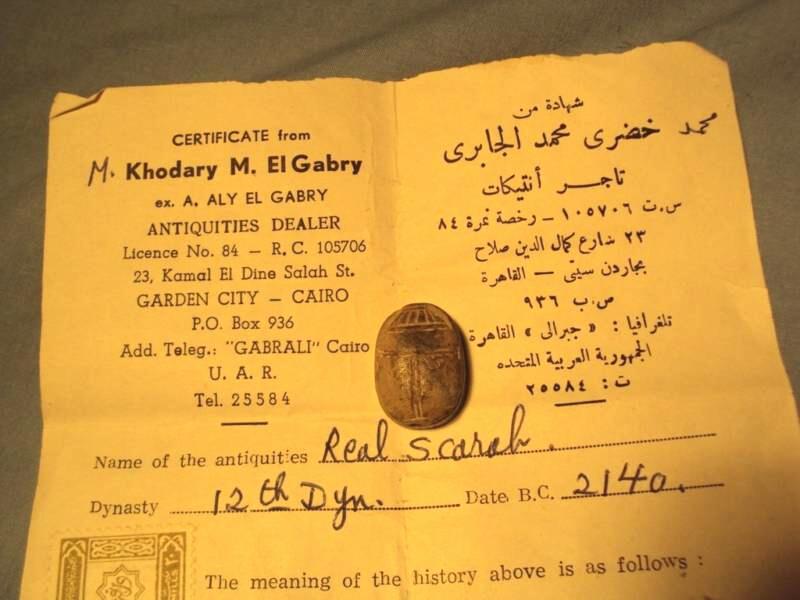 CERTIFICATE from
M. Khodary M. El Gabry
ex. A. ALY EL GABRY
ANTIQUITIES DEALER
Licence No. 84 — R. C. 105706
23, Kamal El Dine Salah St.
GARDEN CITY — CAIRO
P.O. Box 936
Add. Teleg.: "GABRALI" Cairo
U. A. R.
Tel. 25584
شهادة من
محمد خضرى محمد الجابرى
تاجر أنتيكات
س.ت ١٠٥٧٠٦ — رخصة نمرة ٨٤
٢٣ شارع كمال الدين صلاح
بجاردن سيتى — القاهرة
ص.ب ٩٣٦
تلغرافيا : « جبرالى » القاهرة
الجمهورية العربية المتحده
ت : ٢٥٥٨٤
Name of the antiquities Real Scarab.
Dynasty 12th Dyn. Date B.C. 2140.
The meaning of the history above is as follows :